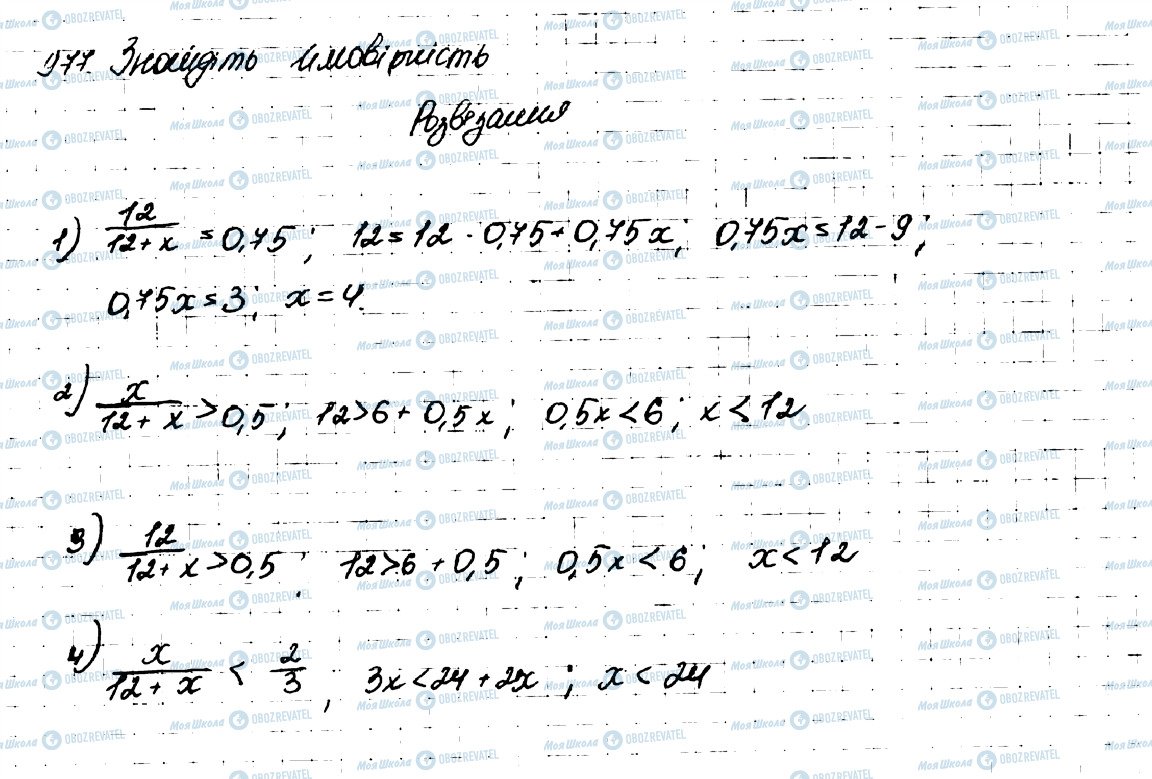 977 Знайдіть имовірність
Розв'язання
1) 12/(12+x) = 0,75; 12 = 12 · 0,75 + 0,75x; 0,75x = 12 - 9;
0,75x = 3; x = 4.
2) x/(12+x) > 0,5; 12 > 6 + 0,5x; 0,5x < 6; x < 12
3) 12/(12+x) > 0,5; 12 > 6 + 0,5; 0,5x < 6; x < 12
4) x/(12+x) < 2/3; 3x < 24 + 2x; x < 24
Моя Школа OBOZREVATEL